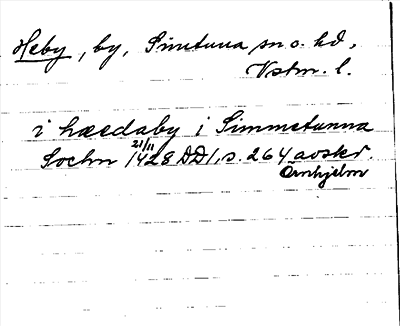 Heby, by, Simtuna sn o. hd,
Vstm. l.
i hæedaby i Simmetunna
Sochn 21/11 1428 DD1, s. 264 avskr.
Örnhjelm